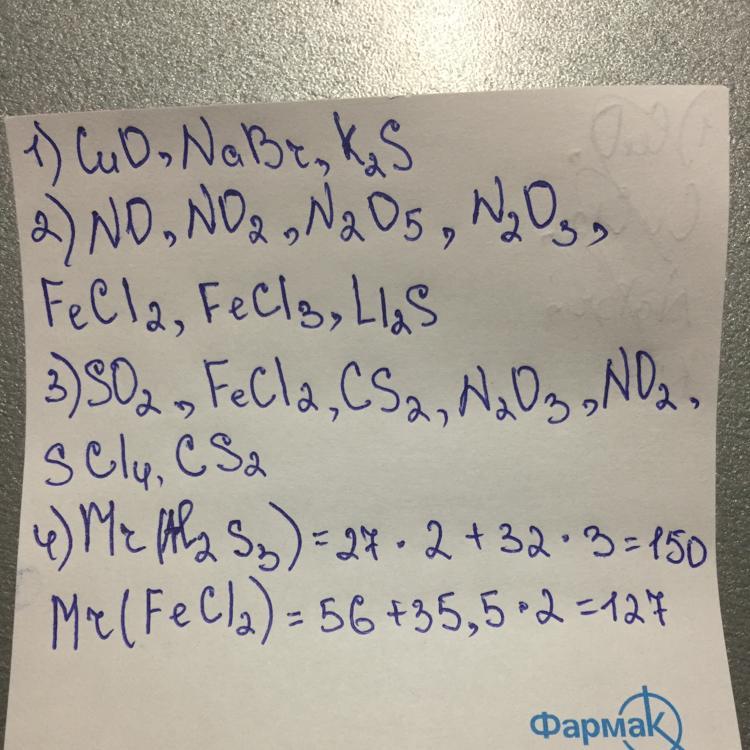 1) CuO, NaBr, K₂S
2) NO, NO₂, N₂O₅, N₂O₃,
FeCl₂, FeCl₃, LI₂S
3) SO₂, FeCl₂, CS₂, N₂O₃, NO₂,
SCl₄, CS₂
4) Mr(Al₂S₃) = 27 · 2 + 32 · 3 = 150
Mr(FeCl₂) = 56 + 35,5 · 2 = 127
Фармак